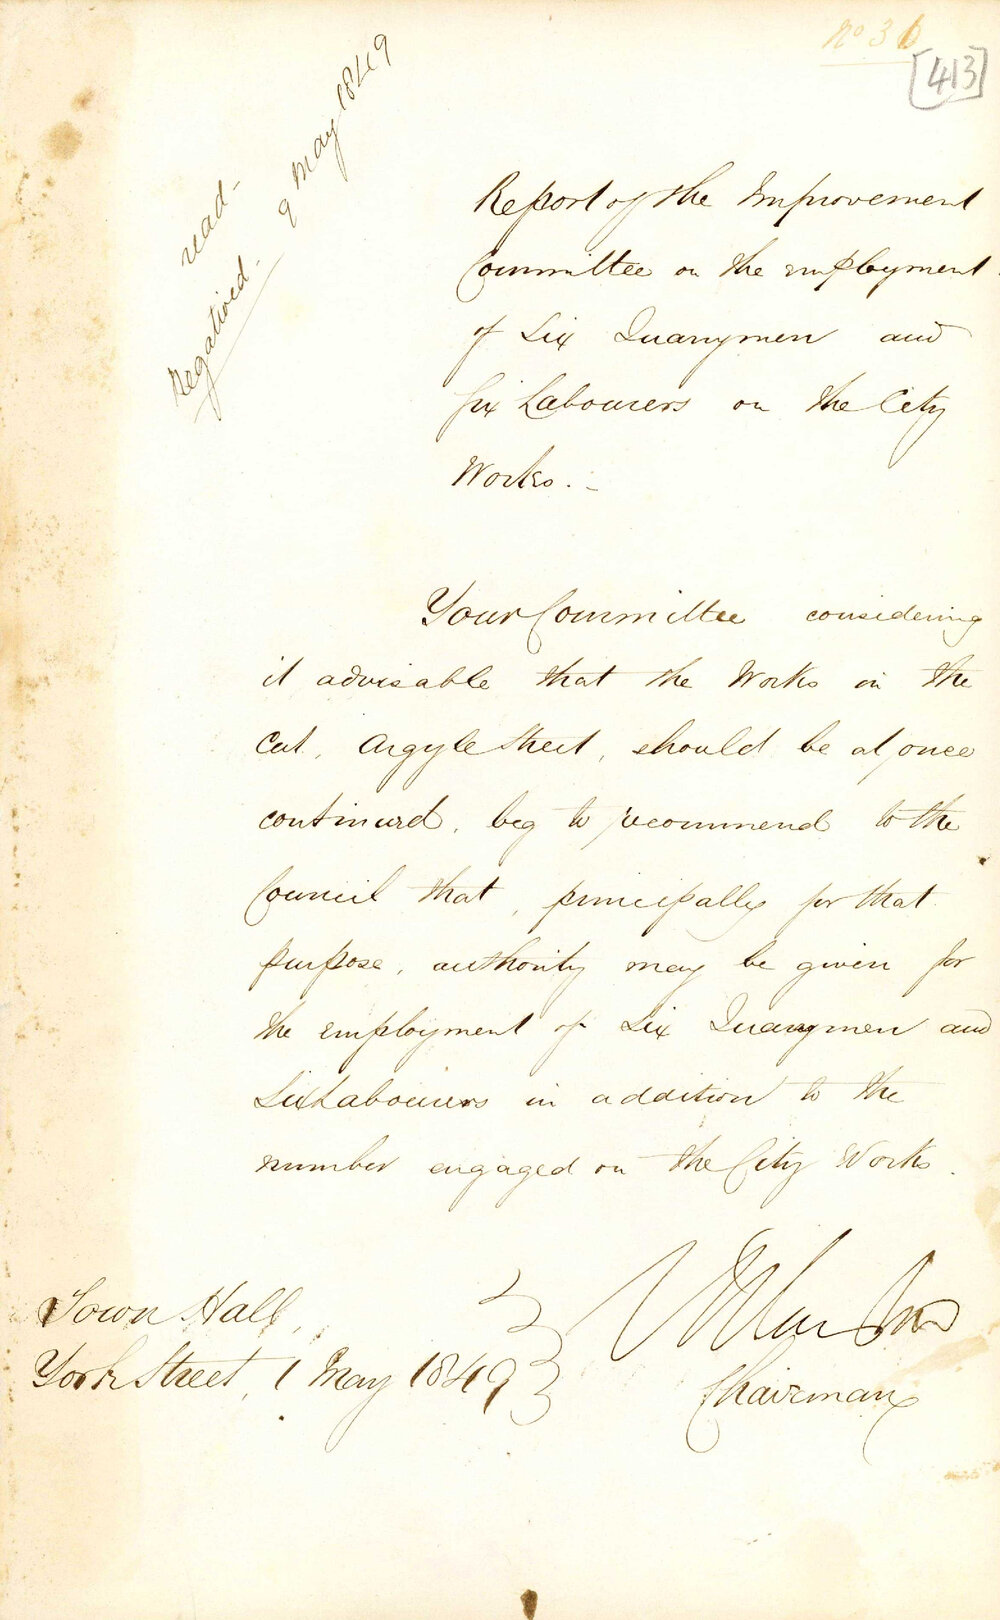 No 36
[413]
read-
Negatived. 9 May 1849
Report of the Improvement
Committee on the employment
of Six Quarrymen and
Six Labourers on the City
Works.-
Your Committee considering
it advisable that the Works in the
Cut, Argyle Street, should be at once
continued, beg to recommend to the
Council that, principally for that
purpose, authority may be given for
the employment of Six Quarrymen and
Six Labourers in addition to the
number engaged on the City Works.
Town Hall,
York Street, 1 May 1849
Chairman